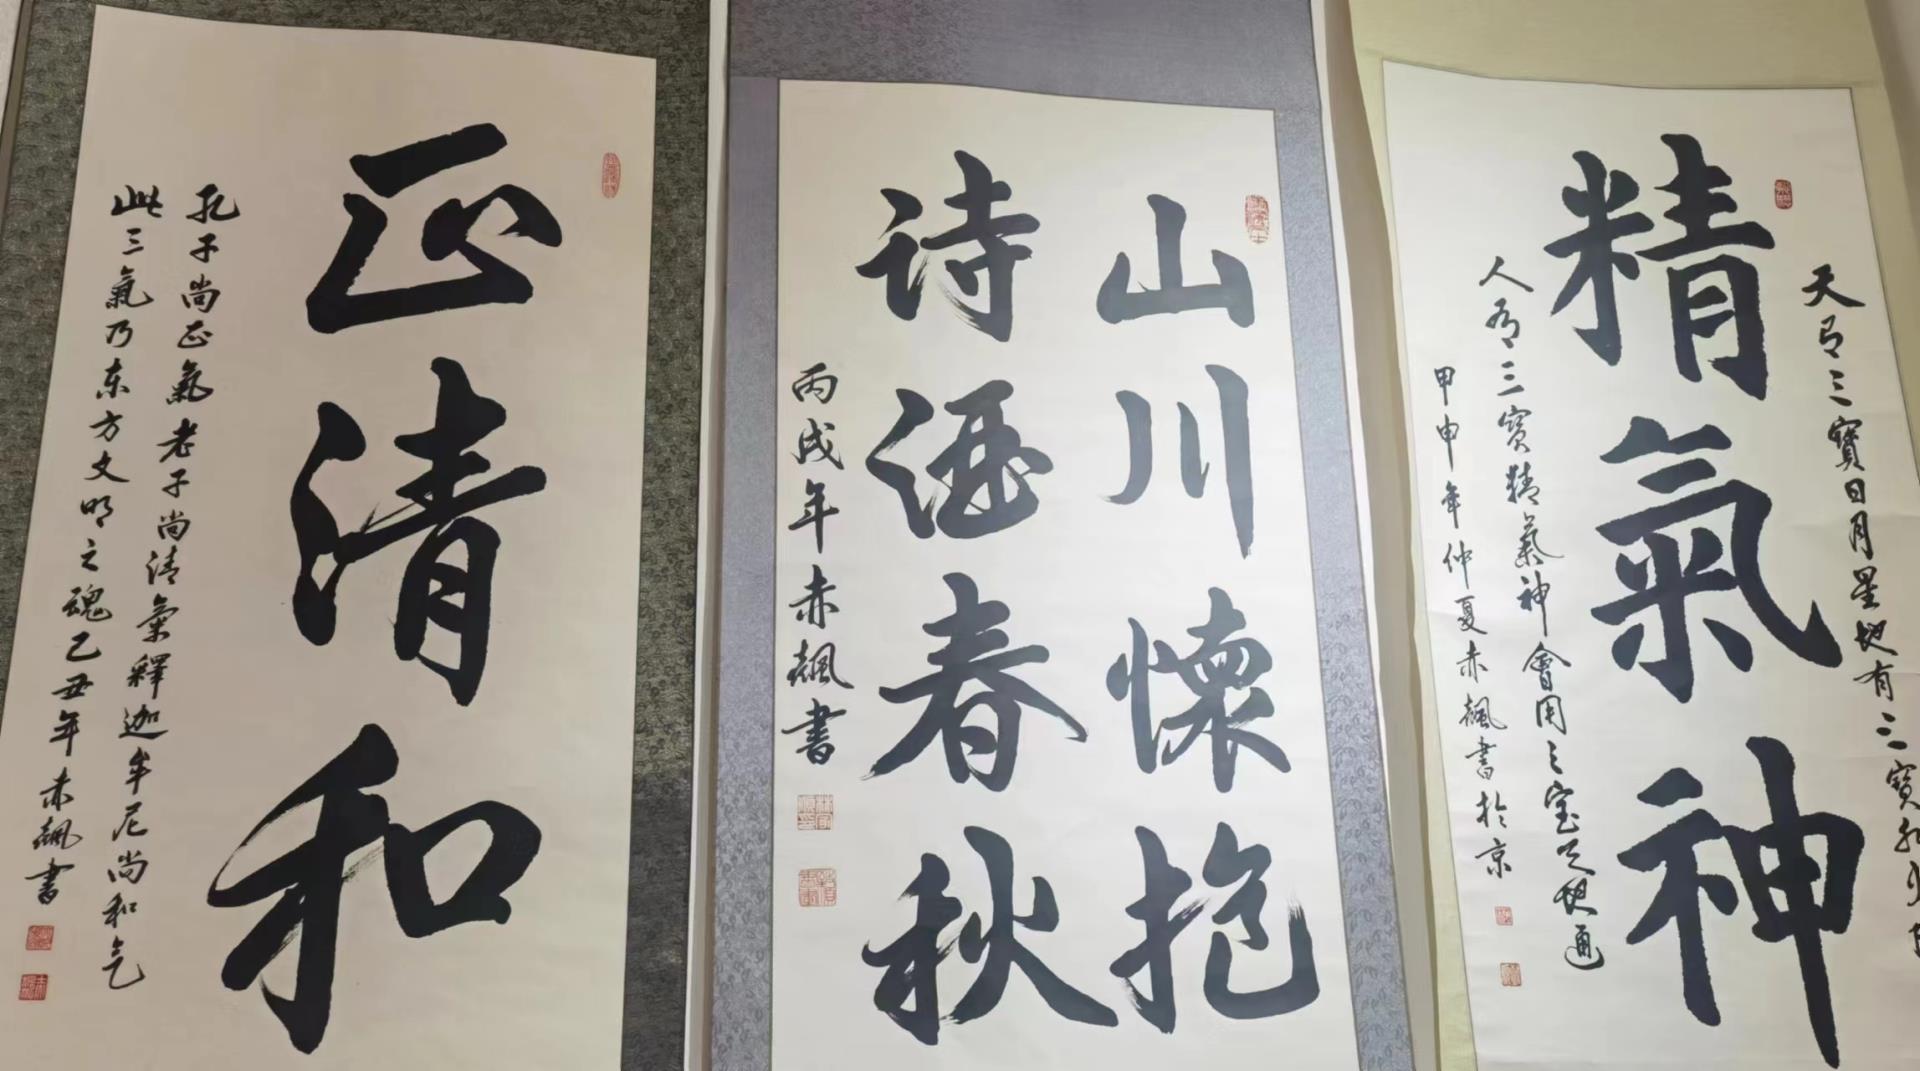 正清和
孔子尚正氣老子尚清氣釋迦牟尼尚和气
此三氣乃东方文明之魂乙丑年赤飆書
山川懷抱
诗酒春秋
丙戌年赤飆書
天有三寶日月星地有三寶水火
精氣神
人有三寶精氣神會用三宝天地通
甲申年仲夏赤飆書於京